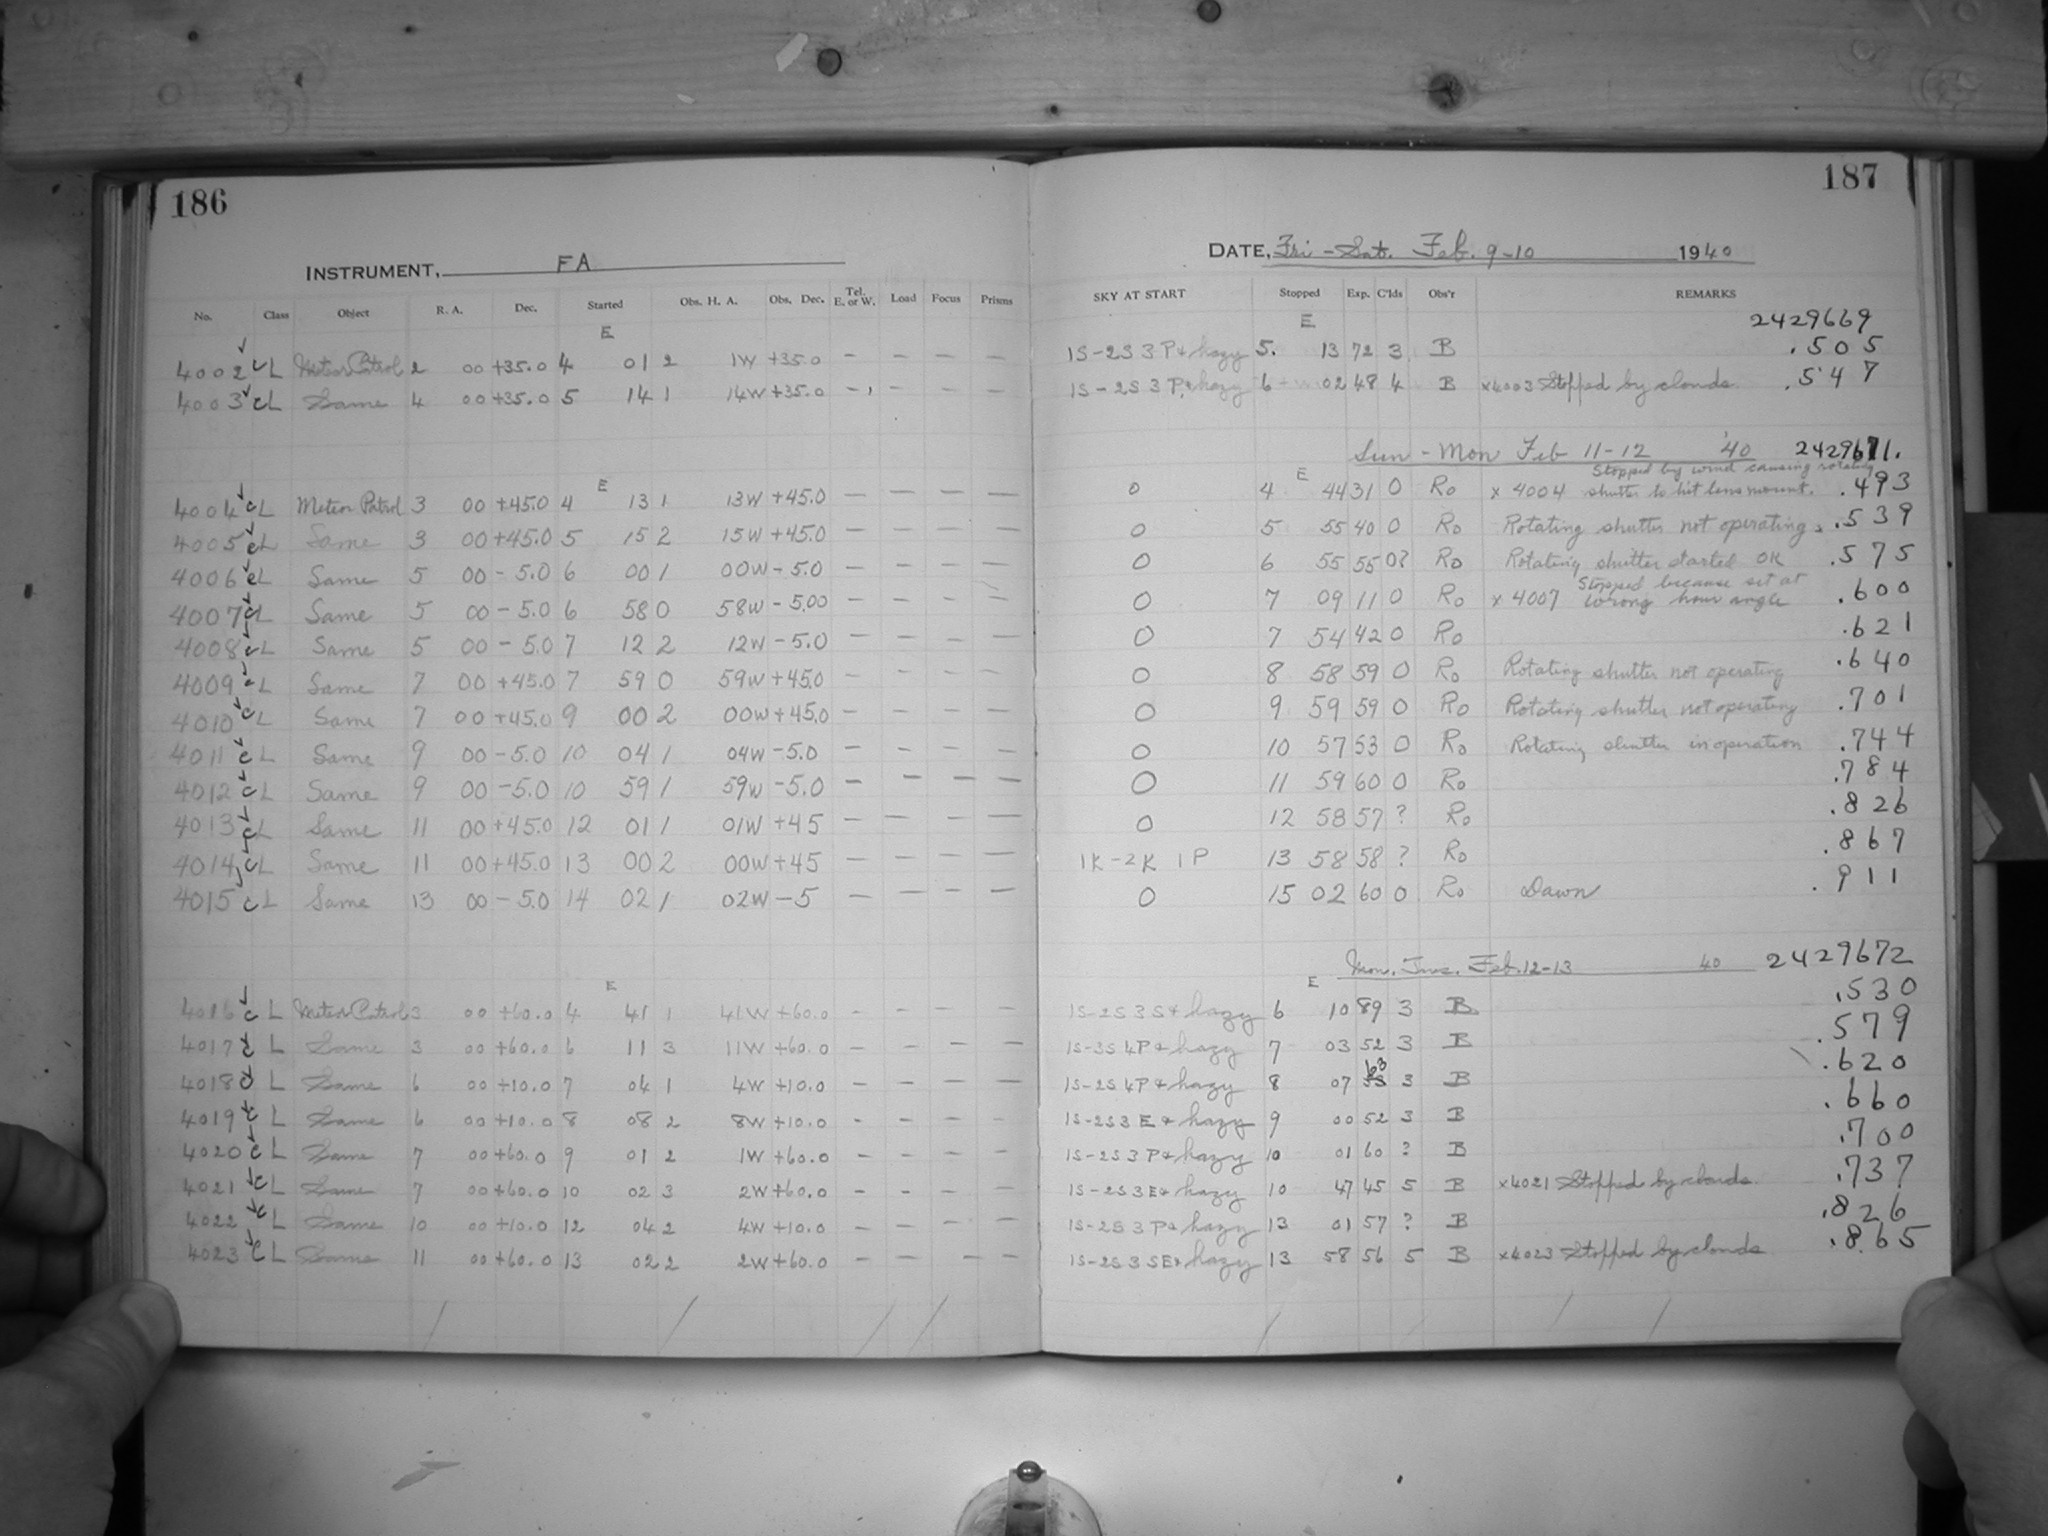 186
187
INSTRUMENT, FA
DATE, Fri - Sat. Feb. 9-10 1940
No. Class Object R. A. Dec. Started Obs. H. A. Obs. Dec. Tel. E. or W. Load Focus Prisms SKY AT START Stopped Exp. C'lds Obs'r REMARKS
E E 2429669
4002 c L Meteor Patrol 2 00 +35.0 4 01 2 1W +35.0 - - - - 1S-2S 3 P & hazy 5. 13 72 3 B .505
4003 c L Same 4 00 +35.0 5 14 1 14W +35.0 - - - - 1S-2S 3 P. & hazy 6 02 48 4 B x4003 Stopped by clouds. .547
Sun - Mon Feb 11-12 '40 2429671.
E E Stopped by wind causing rotating
4004 c L Meteor Patrol 3 00 +45.0 4 13 1 13W +45.0 - - - - 0 4 44 31 0 Ro x 4004 shutter to hit lens mount. .493
4005 c L Same 3 00 +45.0 5 15 2 15W +45.0 - - - - 0 5 55 40 0 Ro Rotating shutter not operating. .539
4006 c L Same 5 00 - 5.0 6 00 1 00W - 5.0 - - - - 0 6 55 55 0? Ro Rotating shutter started OK .575
Stopped because set at
4007 c L Same 5 00 - 5.0 6 58 0 58W - 5.00 - - - - 0 7 09 11 0 Ro x 4007 wrong hour angle .600
4008 c L Same 5 00 - 5.0 7 12 2 12W - 5.0 - - - - 0 7 54 42 0 Ro .621
4009 c L Same 7 00 +45.0 7 59 0 59W +45.0 - - - - 0 8 58 59 0 Ro Rotating shutter not operating .640
4010 c L Same 7 00 +45.0 9 00 2 00W +45.0 - - - - 0 9 59 59 0 Ro Rotating shutter not operating .701
4011 c L Same 9 00 - 5.0 10 04 1 04W - 5.0 - - - - 0 10 57 53 0 Ro Rotating shutter in operation .744
4012 c L Same 9 00 - 5.0 10 59 1 59W - 5.0 - - - - 0 11 59 60 0 Ro .784
4013 c L Same 11 00 +45.0 12 01 1 01W +45 - - - - 0 12 58 57 ? Ro .826
4014 c L Same 11 00 +45.0 13 00 2 00W +45 - - - - 1K-2K 1P 13 58 58 ? Ro .867
4015 c L Same 13 00 - 5.0 14 02 1 02W - 5 - - - - 0 15 02 60 0 Ro Dawn .911
Mon. Tues. Feb. 12-13 40 2429672
E E
4016 c L Meteor Patrol 3 00 +60.0 4 41 1 41W +60.0 - - - - 1S-2S 3 S & hazy 6 10 89 3 B .530
4017 c L Same 3 00 +60.0 6 11 3 11W +60.0 - - - - 1S-3S 4P & hazy 7 03 52 3 B .579
4018 c L Same 6 00 +10.0 7 04 1 4W +10.0 - - - - 1S-2S 4P & hazy 8 07 63 3 B .620
4019 c L Same 6 00 +10.0 8 08 2 8W +10.0 - - - - 1S-2S 3 E & hazy 9 00 52 3 B .660
4020 c L Same 7 00 +60.0 9 01 2 1W +60.0 - - - - 1S-2S 3 P & hazy 10 01 60 ? B .700
4021 c L Same 7 00 +60.0 10 02 3 2W +60.0 - - - - 1S-2S 3 E & hazy 10 47 45 5 B x4021 Stopped by clouds. .737
4022 c L Same 10 00 +10.0 12 04 2 4W +10.0 - - - - 1S-2S 3 P & hazy 13 01 57 ? B .826
4023 c L Same 11 00 +60.0 13 02 2 2W +60.0 - - - - 1S-2S 3 SE & hazy 13 58 56 5 B x4023 Stopped by clouds .865